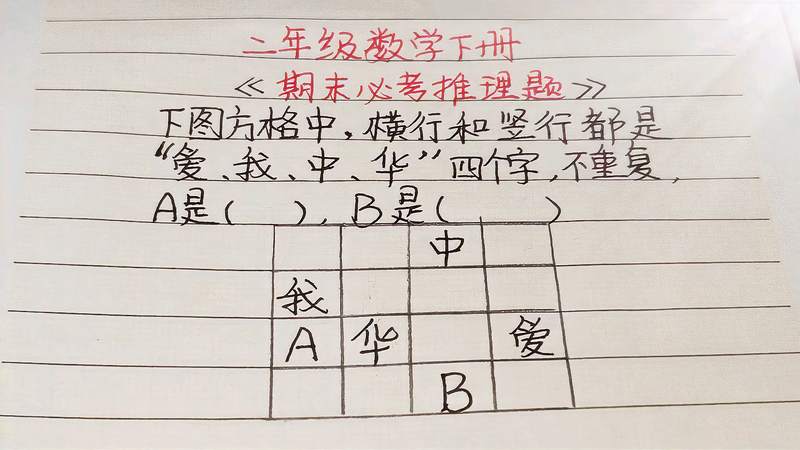 二年级数学下册
《期末必考推理题》
下图方格中,横行和竖行都是
“爱、我、中、华”四个字,不重复,
A是( ),B是( )
中
我
A 华 爱
B